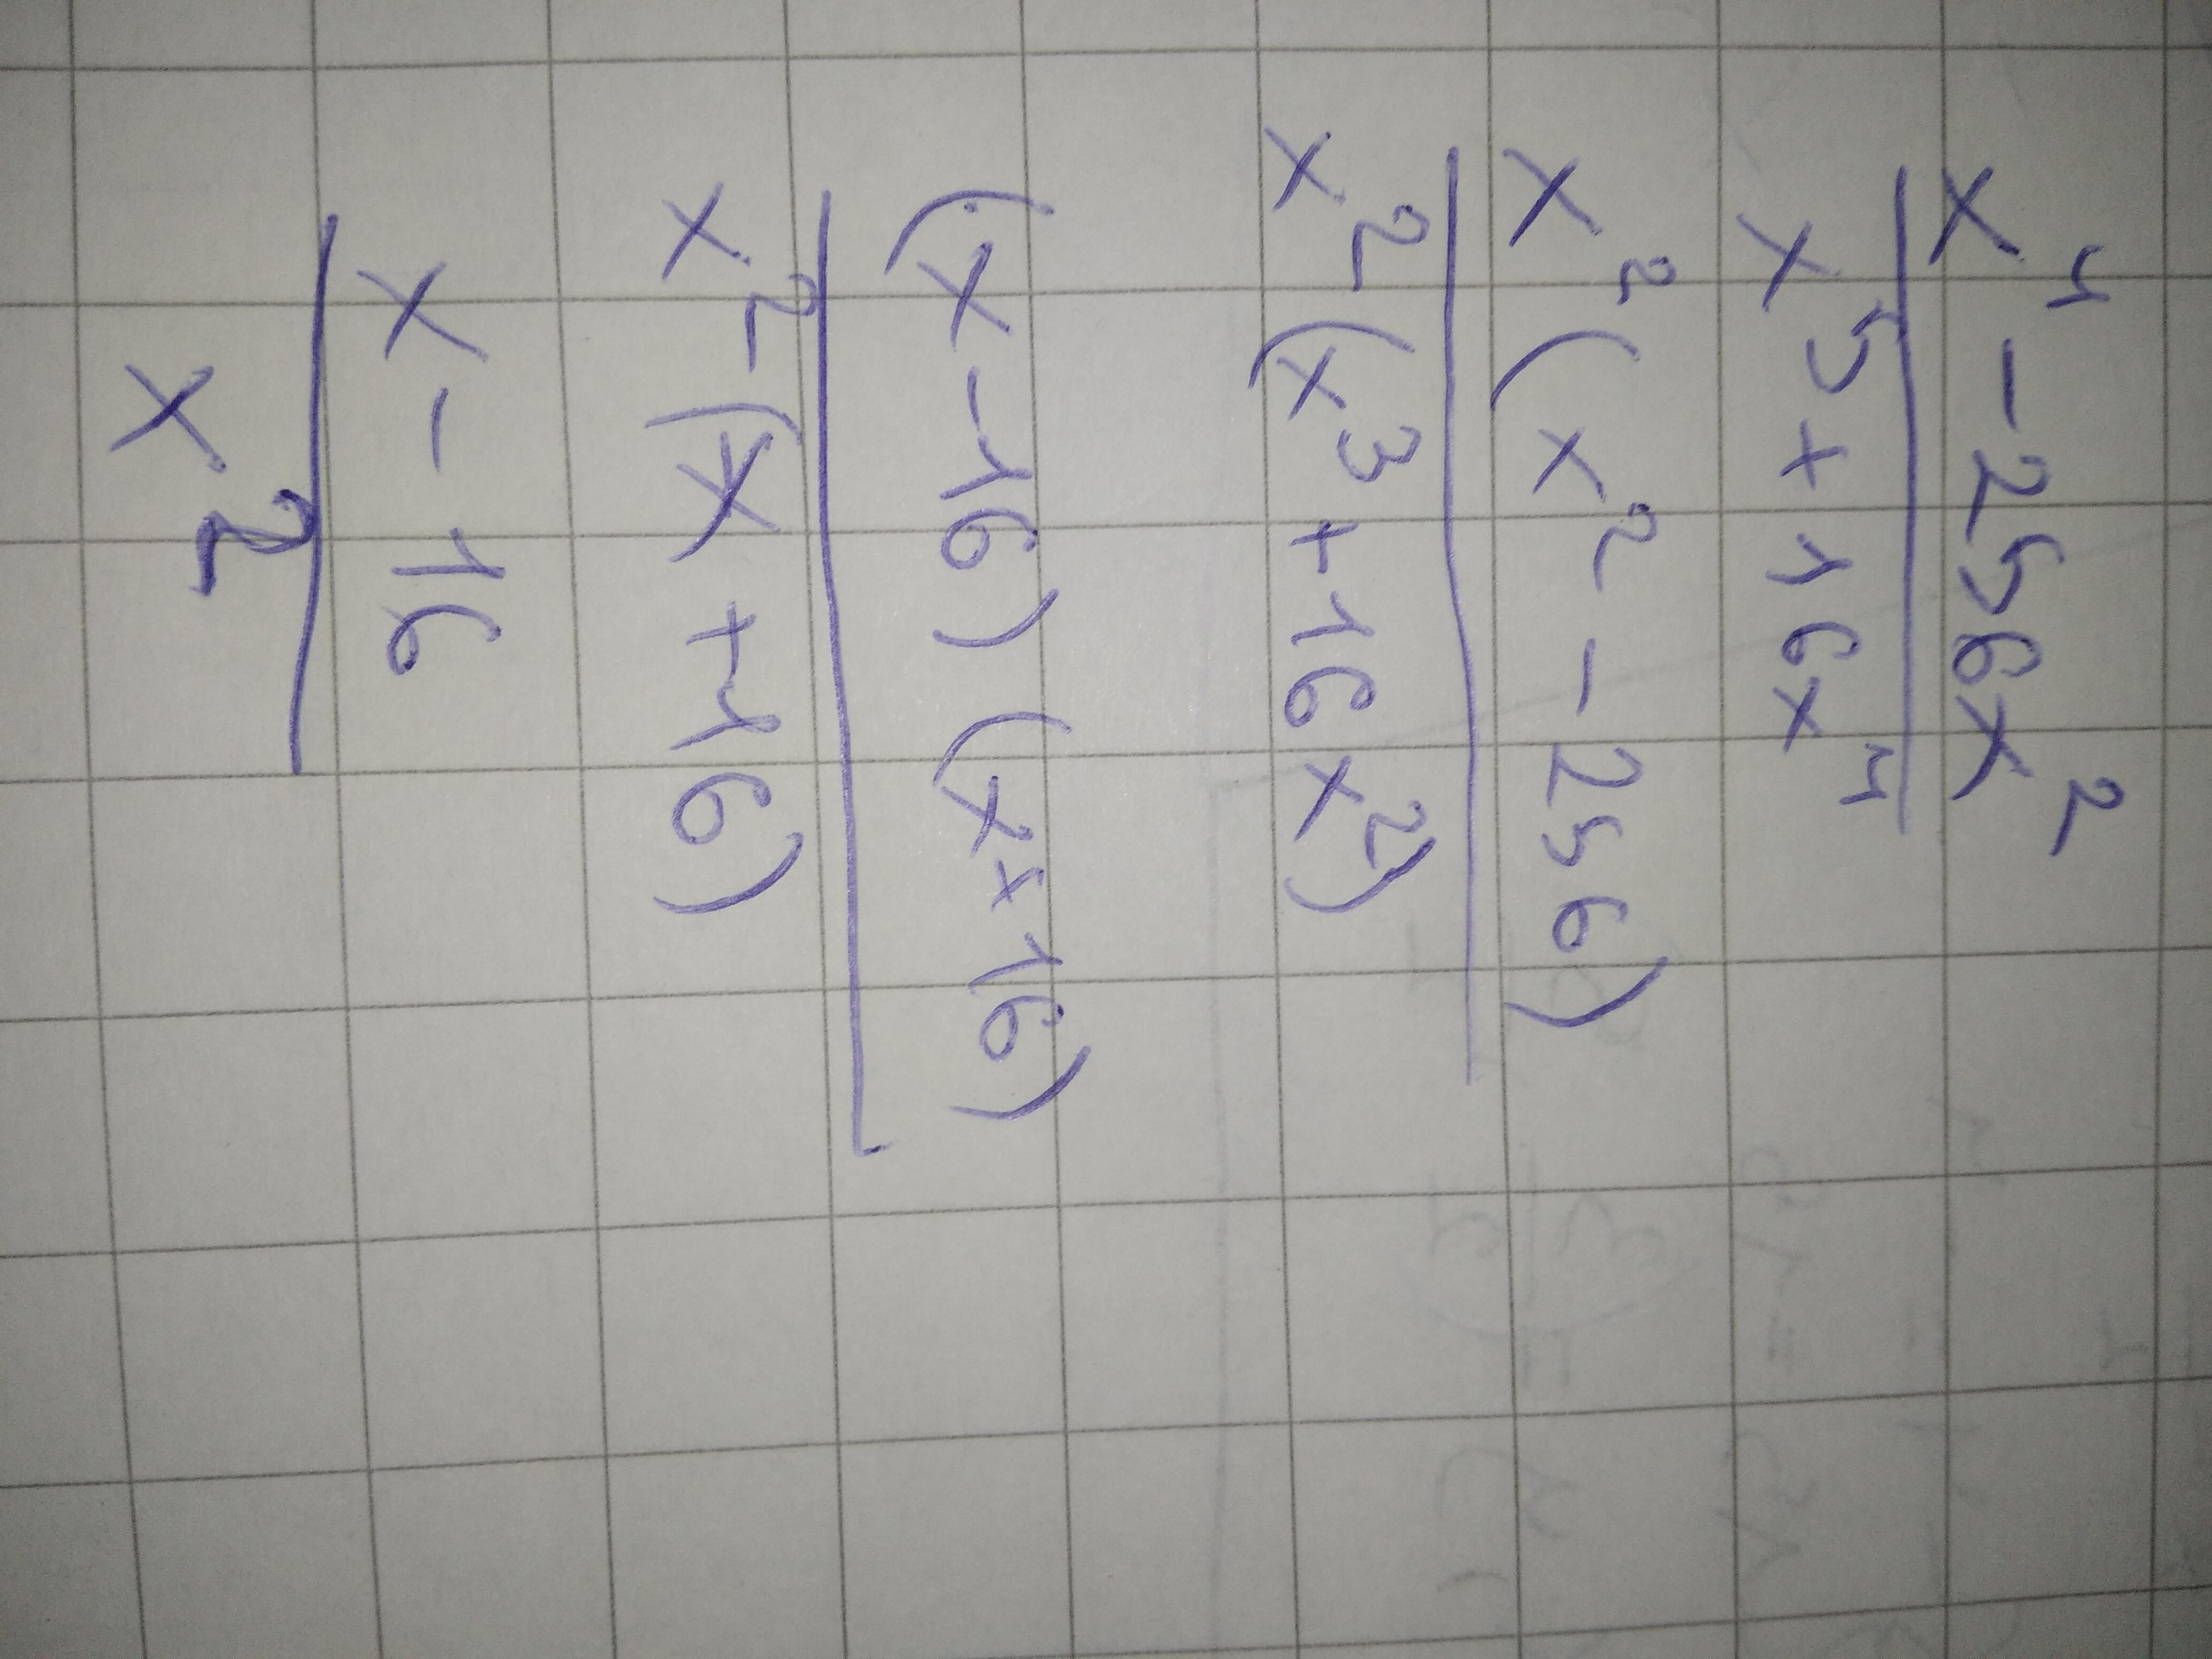 x⁴ - 256x²
x⁵ + 16x⁴
x² (x² - 256)
x² (x³ + 16x²)
(x - 16) (x + 16)
x² (x + 16)
x - 16
x²